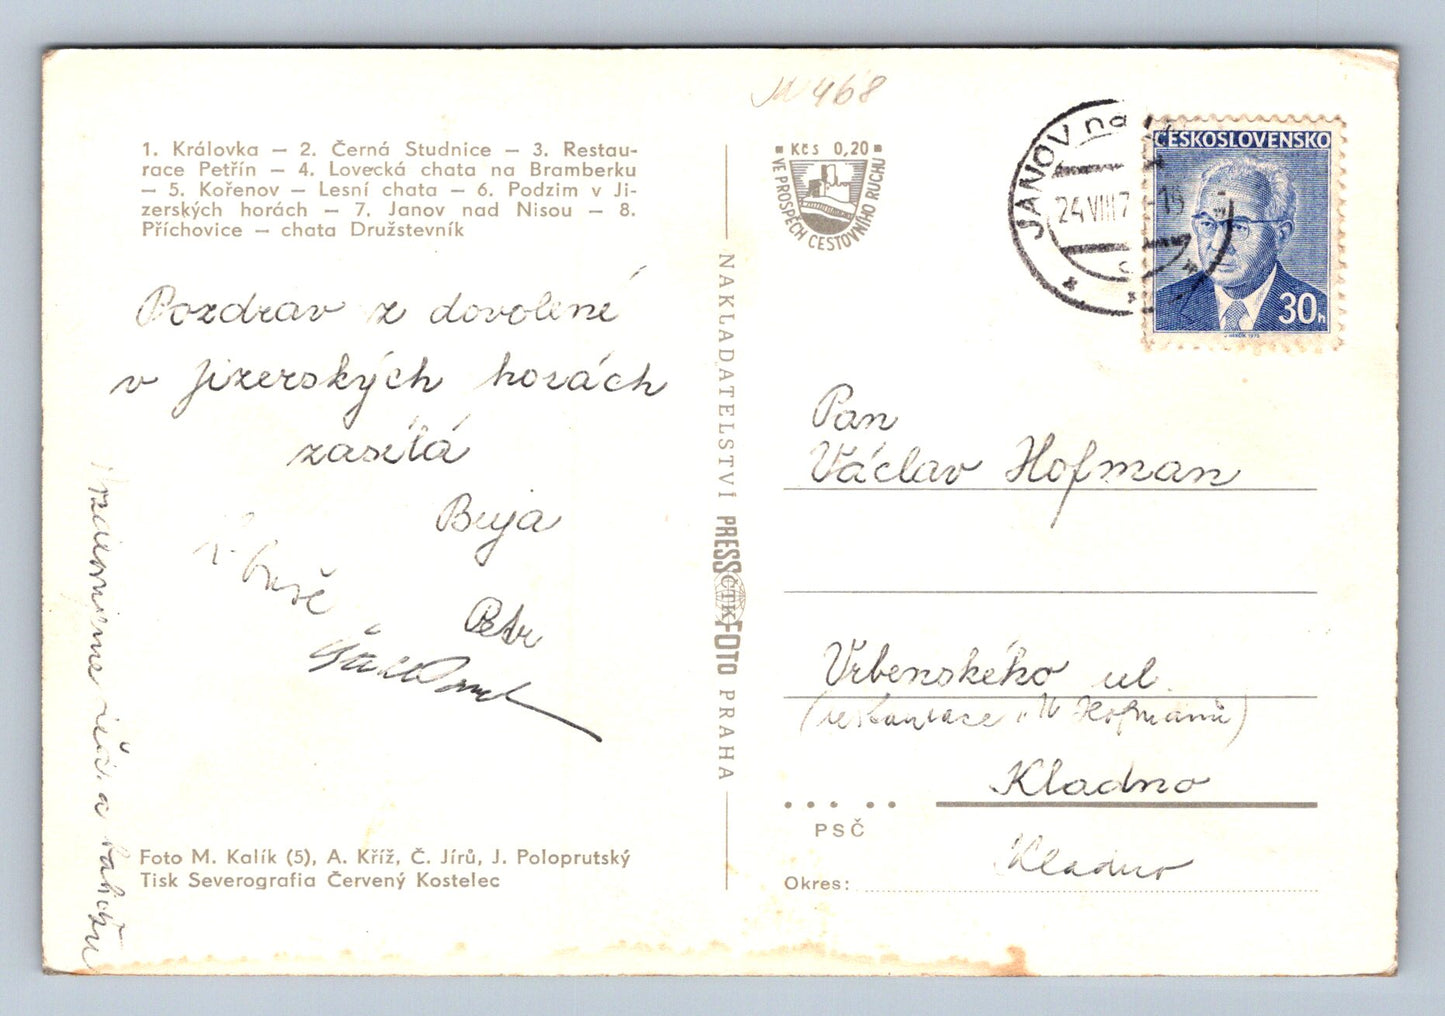 M 468
1. Královka — 2. Černá Studnice — 3. Restau-
race Petřín — 4. Lovecká chata na Bramberku
— 5. Kořenov — Lesní chata — 6. Podzim v Ji-
zerských horách — 7. Janov nad Nisou — 8.
Příchovice — chata Družstevník
Pozdrav z dovolené
v Jizerských horách
zasílá
Petr
Foto M. Kalík (5), A. Kříž, Č. Jírů, J. Poloprutský
Tisk Severografia Červený Kostelec
NAKLADATELSTVÍ PRESSFOTO PRAHA
ČTK
Kčs 0,20
VE PROSPĚCH CESTOVNÍHO RUCHU
JANOV na
24.VIII.7 -18
ČESKOSLOVENSKO
30h
Pan
Václav Hofman
Vrbenského ul.
(restaurace "U Hofmanů)
Kladno
PSČ
Kladno
Okres: